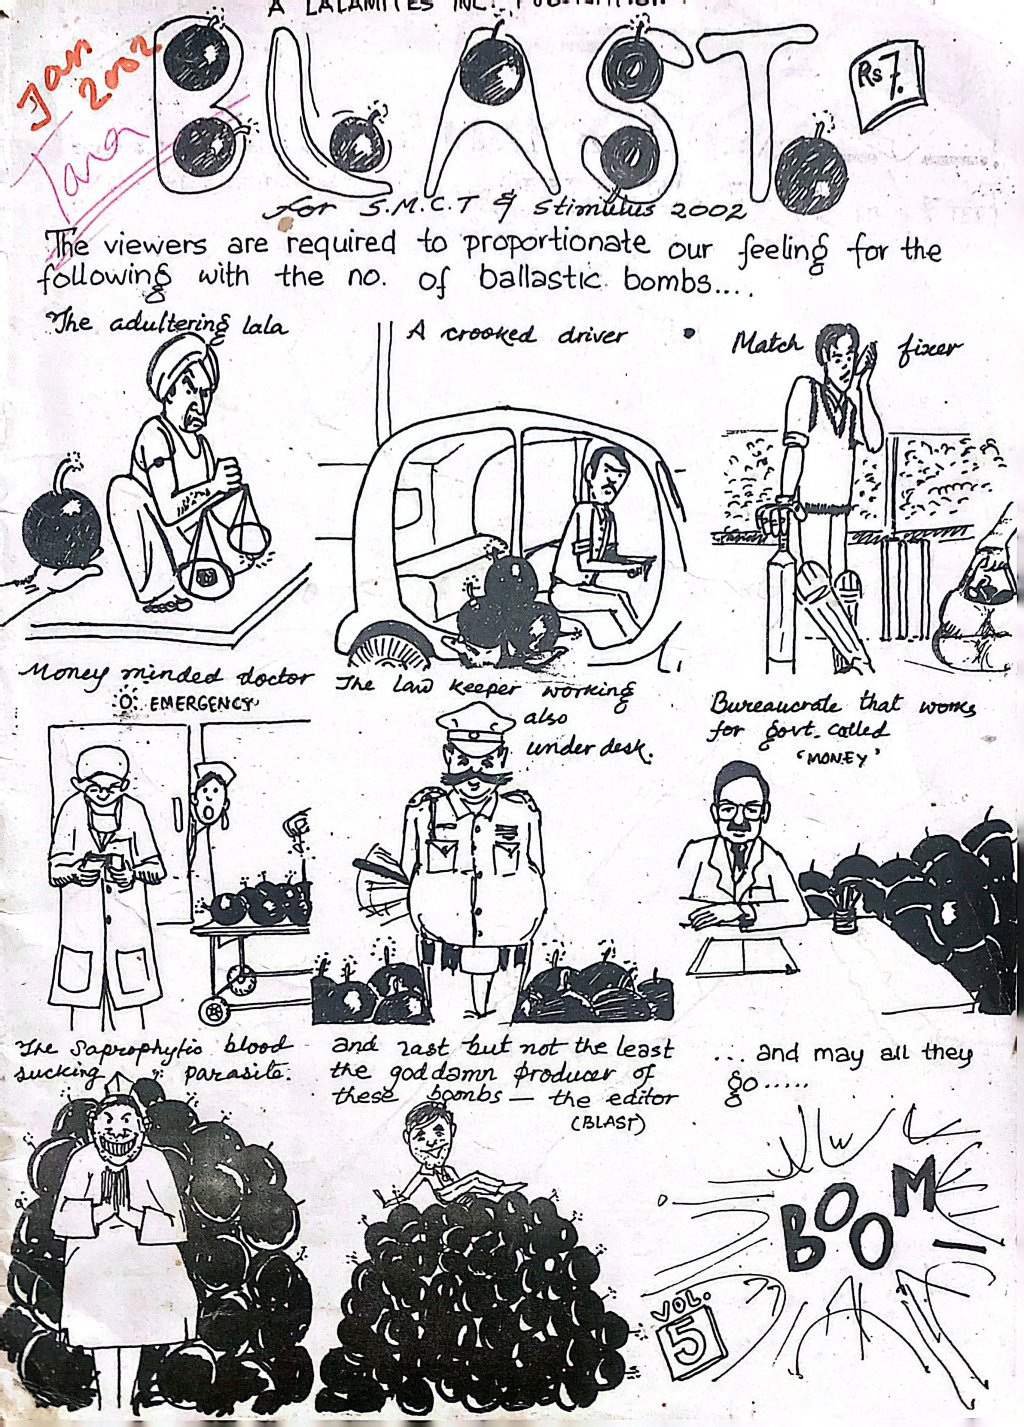 A LALAMITES INC. PUBLICATION
BLAST
Rs 7.
Jan
2002
Tara
for S.M.C.T & Stimulus 2002
The viewers are required to proportionate our feeling for the
following with the no. of ballastic bombs....
The adultering lala
A crooked driver
Match fixer
Money minded doctor
EMERGENCY
The law keeper working
also
under desk.
Bureaucrate that works
for govt. called
'MONEY'
The Saprophytic blood
sucking parasite.
and last but not the least
the god damn producer of
these bombs — the editor
(BLAST)
... and may all they
go.....
BOOM
VOL.
5